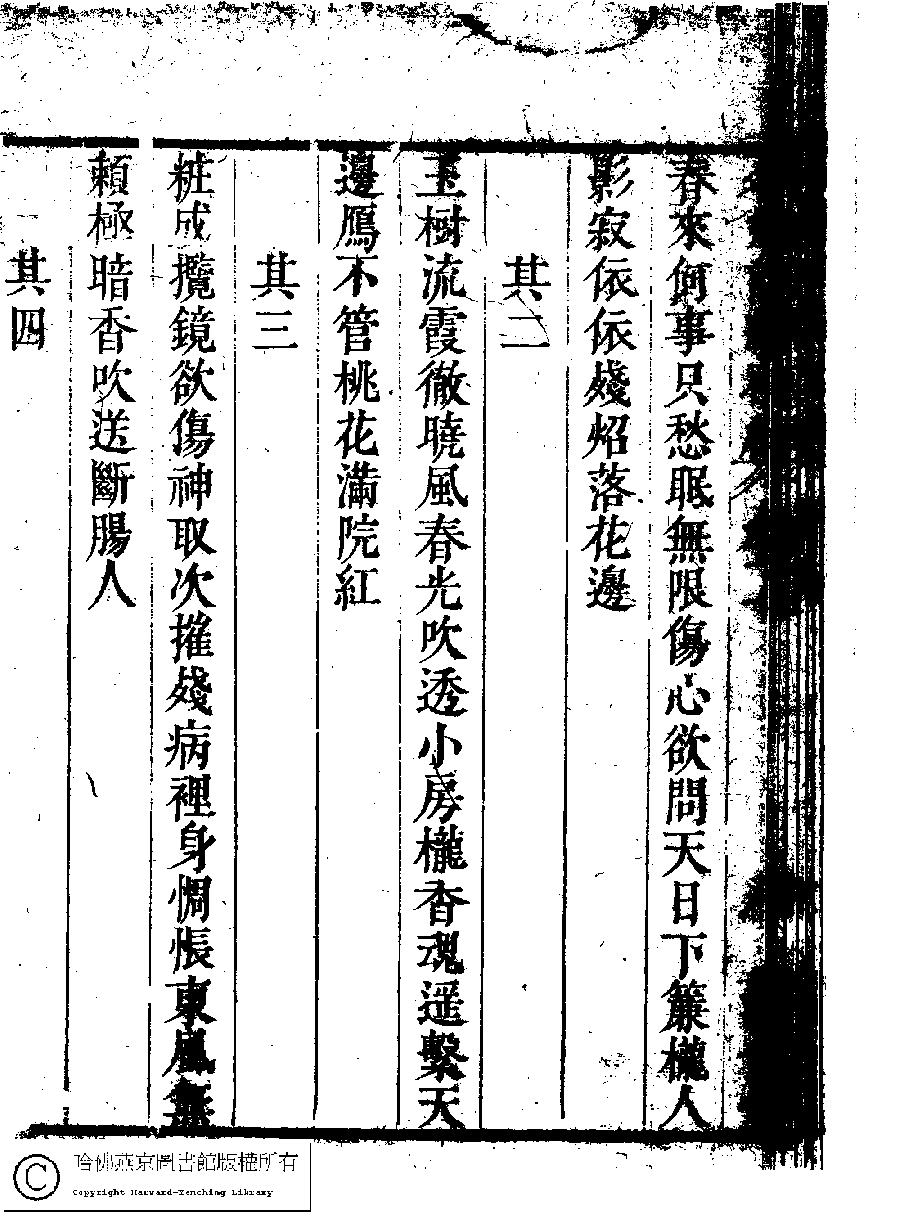 春來何事只愁眠無限傷心欲問天日下簾櫳人
影寂依依殘炤落花邊
其二
玉樹流霞徹曉風春光吹透小房櫳香魂遥繫天
邊鴈不管桃花滿院紅
其三
粧成攬鏡欲傷神取次摧殘病裡身惆悵東風無
賴極暗香吹送斷腸人
其四
哈佛燕京圖書館版權所有
Copyright Harvard-Yenching Library